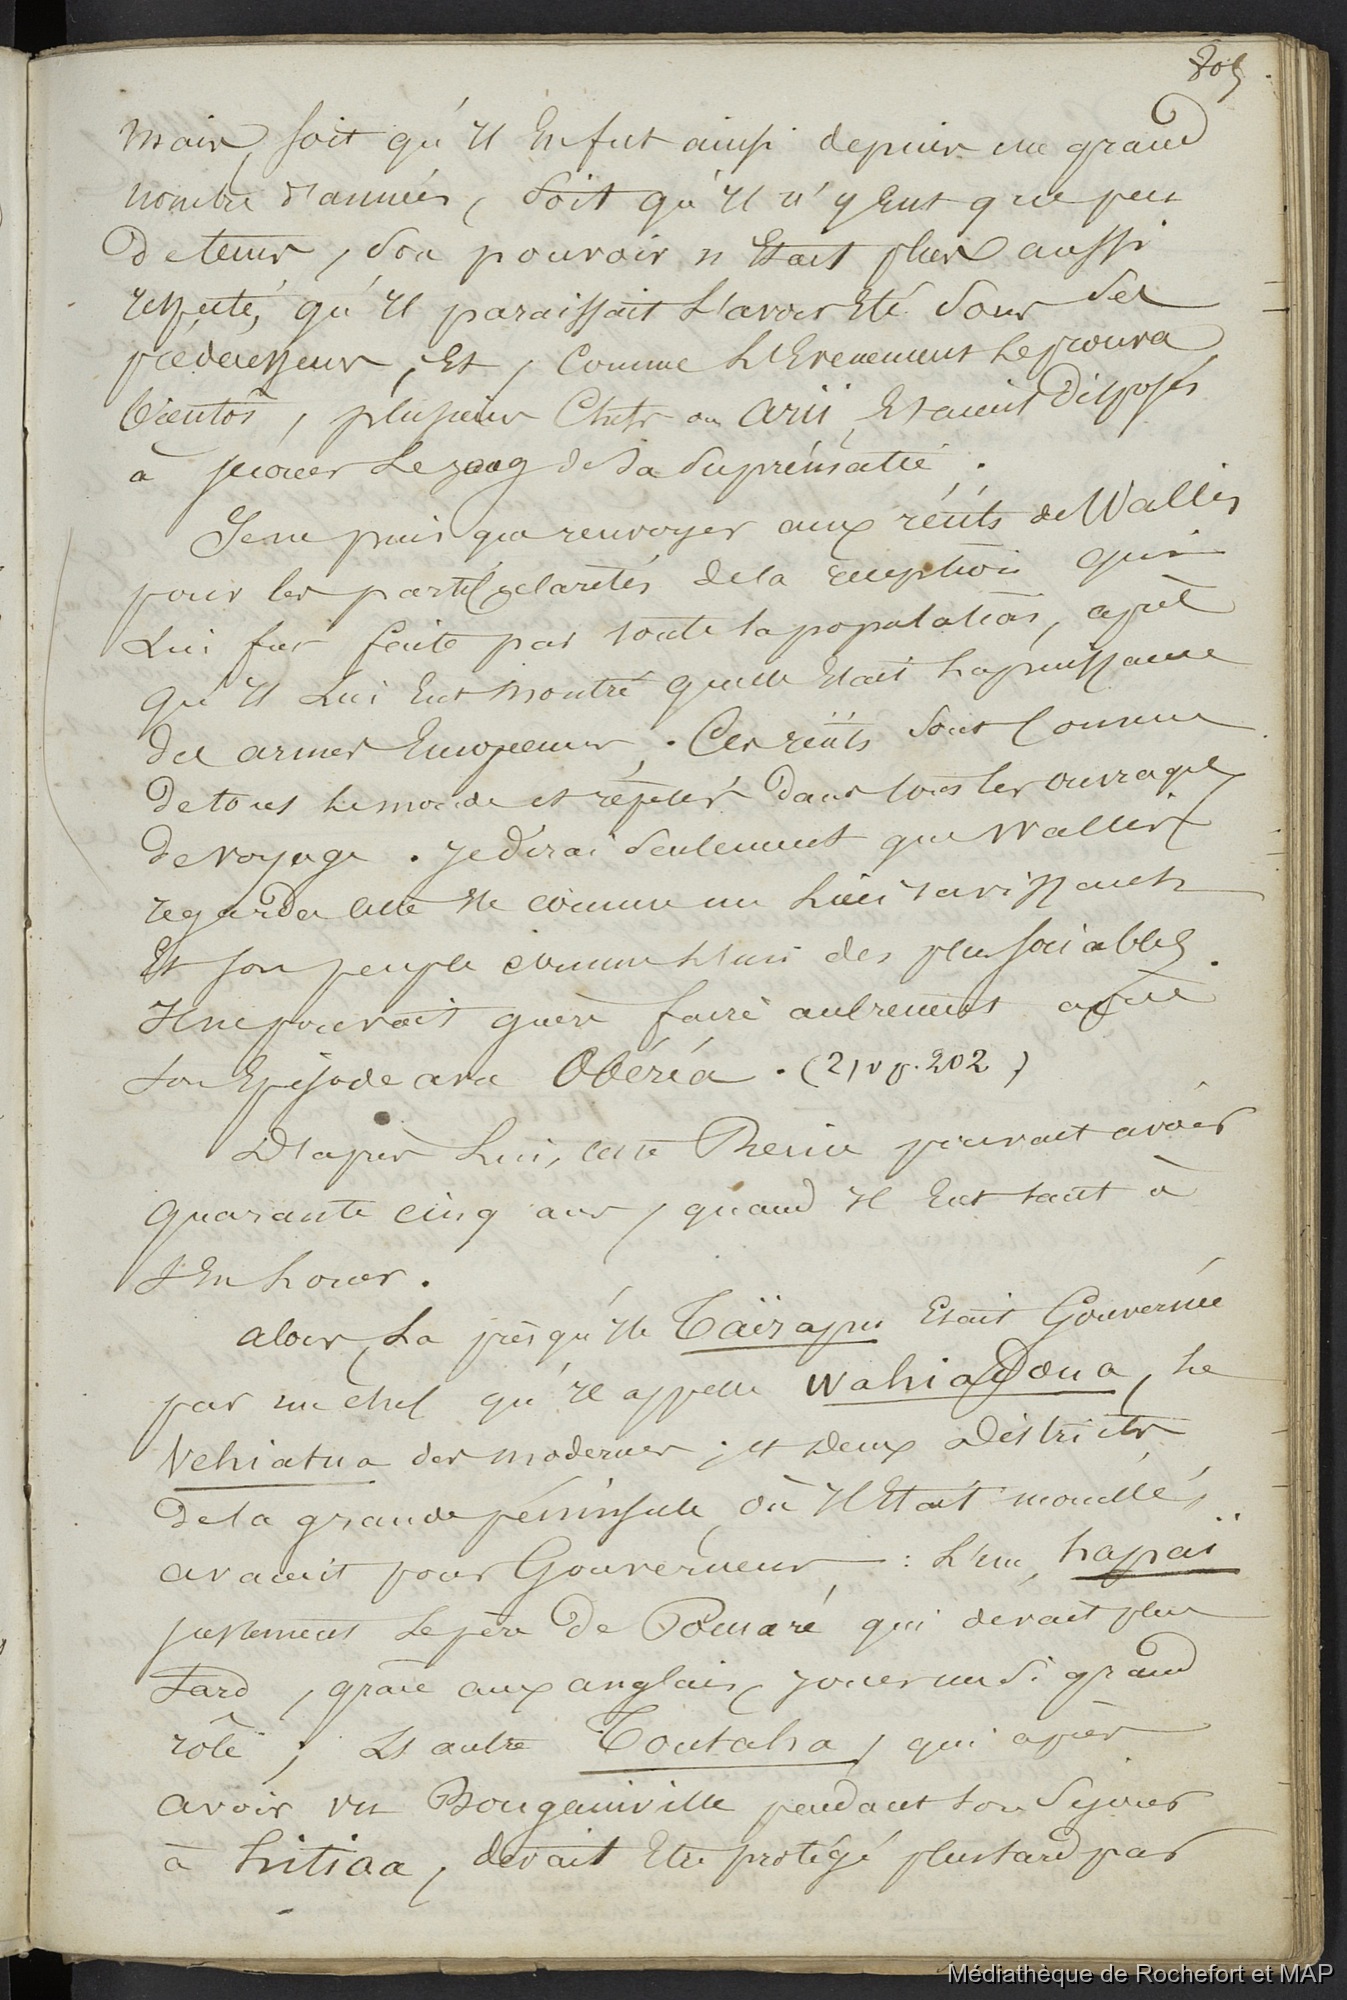 805
mais, soit qu'il En fut ainsi depuis un grand
nombre d'années, soit qu'il n'y Eut que peu
de tems, Son pouvoir n'Etait plus aussi
respecté, qu'il paraissait L'avoir Eté Sous Ses
prédécesseurs, Et, Comme L'Evenement le prouva
bientôt, plusieurs Chefs ou Arii, Etaient Disposés
à secouer Le joug de Sa Suprématie.
Je ne puis que renvoyer aux récits de Wallis
pour les particularités de la réception qui
Lui fut faite par toute la population, après
qu'il Lui Eut montré quelle était La puissance
des armes Européennes. Ces récits Sont Connus
de tout Le monde et répétés dans tous les ouvrages
de voyage. Je dirai Seulement que Wallis
regarda cette Ile comme un Lieu ravissant
Et son peuple comme L'un des plus sociables.
Il ne pouvait guère faire autrement après
Son Episode avec Obéréa. (2) v p. 202)
D'après Lui, cette Reine pouvait avoir
quarante cinq ans, quand il Eut tant à
S'En Louer.
alors, La presqu'ile Taïrapu Etait Gouvernée
par un chef qu'il appelle Wahiadoua, Le
Vehiatua des modernes; et Deux Districts
de la grande péninsule, où il Etait mouillé,
avaient pour Gouverneurs: L'un, hapaï
justement Le père de Pomaré, qui devait plus
Tard, grâce aux anglais, jouer un Si grand
rôle; L'autre Toutaha, qui après
avoir vu Bougainville pendant Son Séjour
à hitiaa, devait Etre protégé plus tard par
Médiathèque de Rochefort et MAP